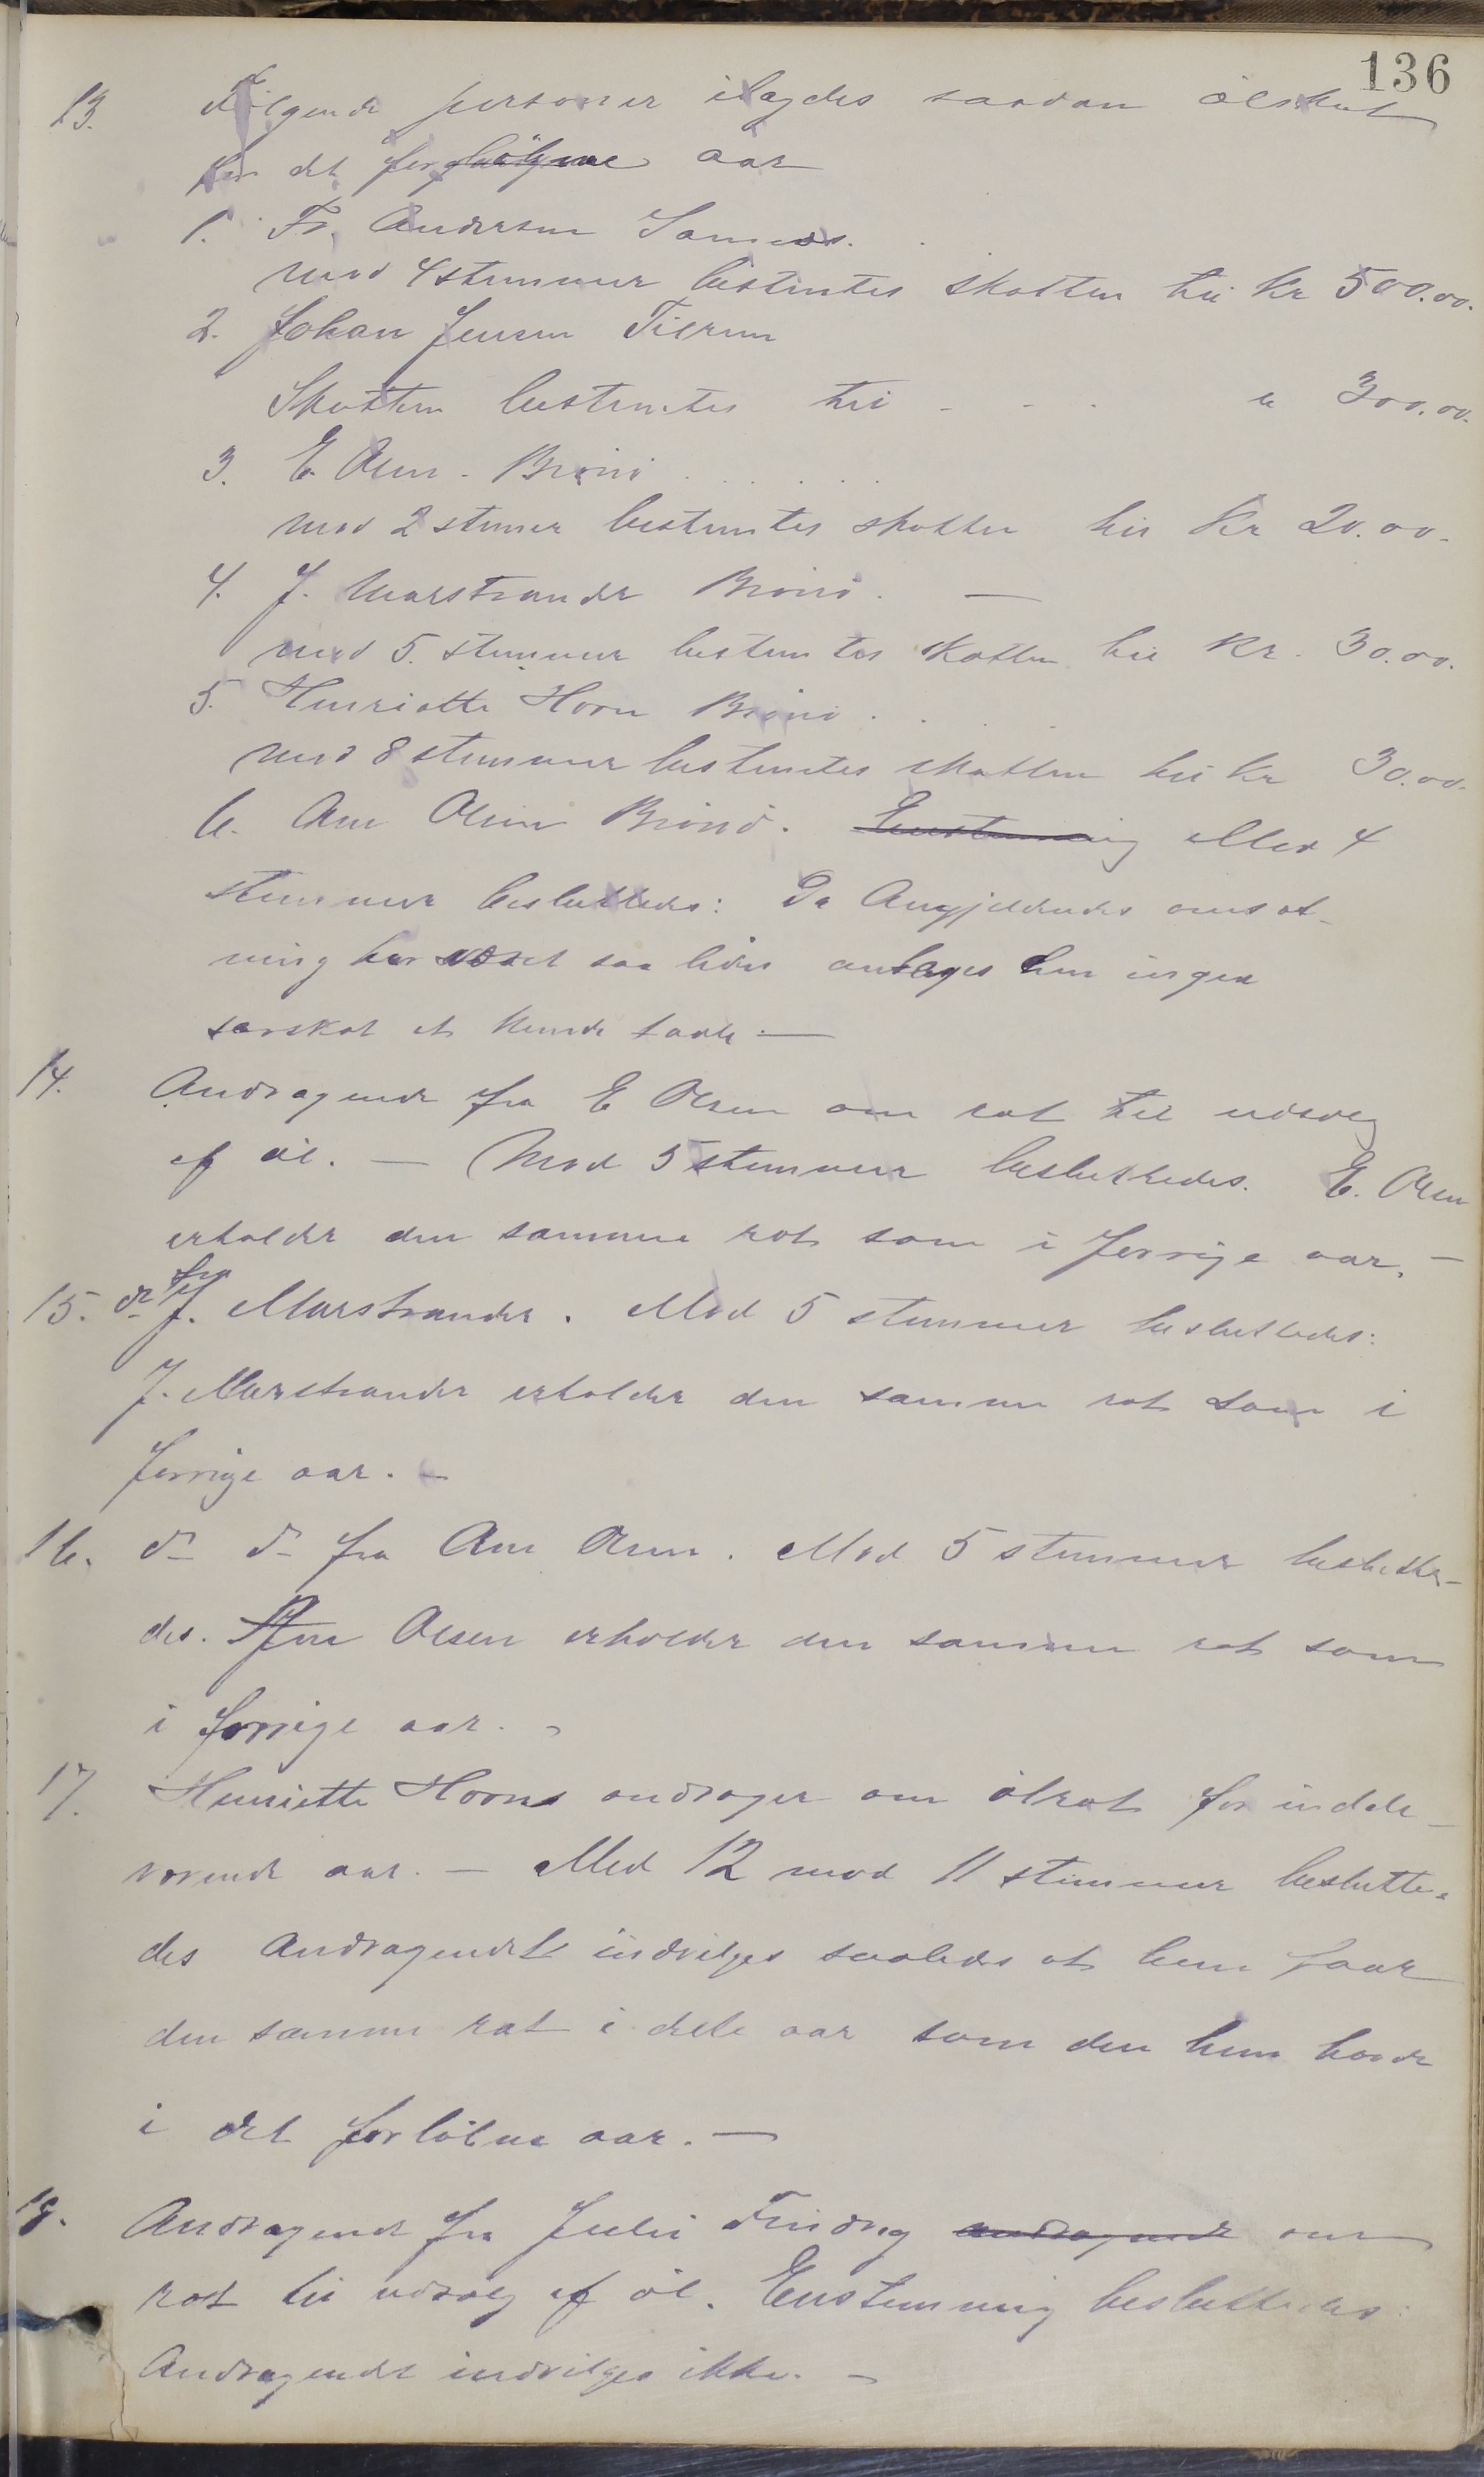 136
13. Følgende personer ilagdes saadan ølskat
for det forløbne aar
1. Fr. Andersen Somnes.
Mod 4 stemmer bestemtes skatten til Kr 500.00.
2. Johan Jensen Tilrem
Skatten bestemtes til - - - " 300.00.
3. E. Olsen - Brønø
mod 2 stemmer bestemtes skatten til Kr 20.00.
4. J. Marstrander Brønø. —
mod 5. stemmer bestemtes skatten til Kr. 30.00.
5. Henriette Horn Brønø . . .
mod 8 stemmer bestemtes skatten til Kr 30.00.
6. Ane Olsen Brønø. Enstemmig Mod 4
stemmer besluttedes: Da Angjeldendes omsæt-
ning har været saa liden antages hun ingen
særskat at kunde taale. —
14. Andragende fra E Olsen om ret til udsalg
af øl. — Mod 5 stemmer besluttedes. E. Olsen
erholder den samme ret som i forrige aar. —
15. do fra J. Marstrander. Mod 5 stemmer besluttedes:
J. Marstrander erholder den samme ret som i
forrige aar. —
16. do do fra Ane Olsen. Mod 5 stemmer beslutte-
des. Ane Olsen erholder den samme ret som
i forrige aar. -
17. Henriette Horns andrager om ølret for indde-
værende aar. — Med 12 mod 11 stemmer beslutte-
des Andragendet indvilges saaledes at hun faar
den samme ret i dette aar som den hun havde
i det forløbne aar. —
18. Andragende fra Julie Findvig andragende om
ret til udsalg af øl. Enstemmig besluttedes:
Andragendet indvilges ikke. —